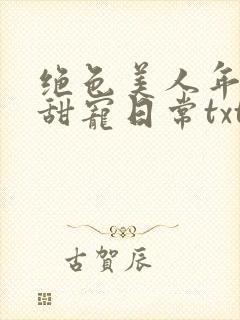 绝色美人年
甜宠日常txt
古賀辰